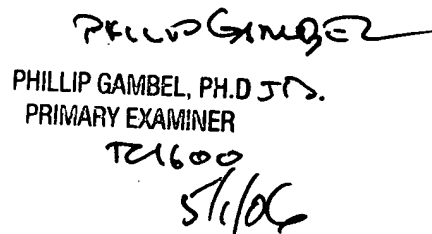 PHILLIP GAMBEL
PHILLIP GAMBEL, PH.D J.D.
PRIMARY EXAMINER
TC1600
5/1/06